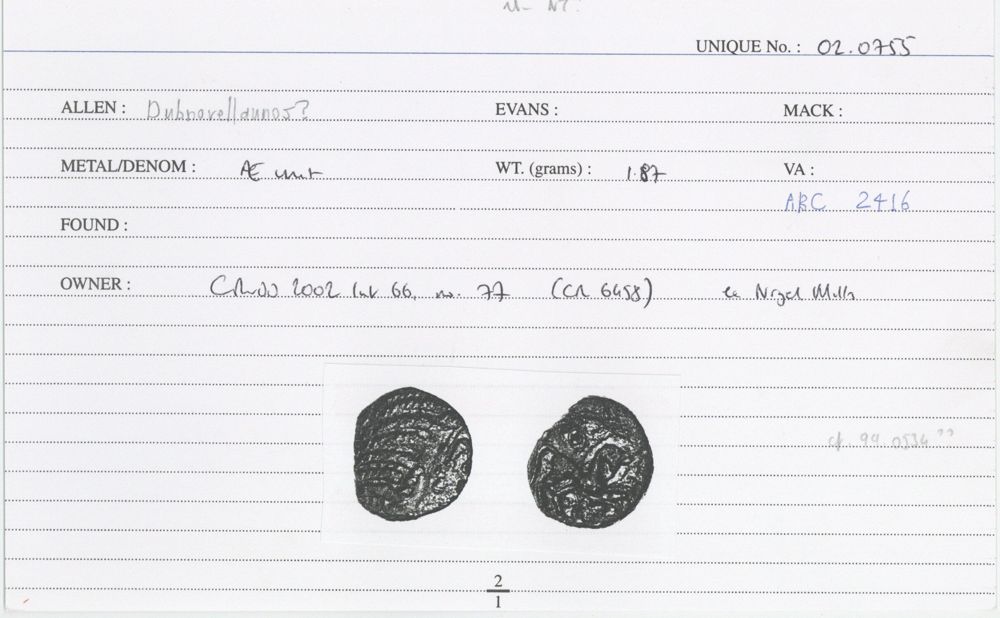 UNIQUE No. : 02.0755
ALLEN : Dubnovellaunos? EVANS : MACK :
METAL/DENOM : Æ unit WT. (grams) : 1.87 VA :
ABC 2416
FOUND :
OWNER : 2002 66, no. 77 (CR 6458) ex Nigel Mills
cf. 99.0534 ??
2
1